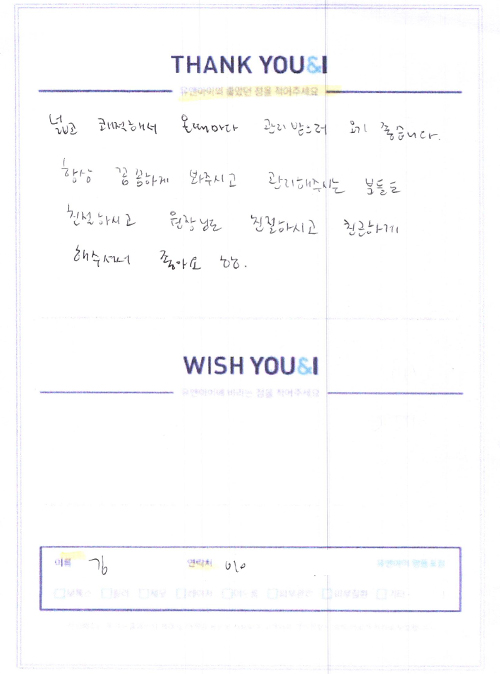 THANK YOU&I
유앤아이의 좋았던 점을 적어주세요
넓고 쾌적해서 올때마다 관리받으러 오기 좋습니다.
항상 꼼꼼하게 봐주시고 관리해주시는 분들도
친절하시고 원장님도 친절하시고 친근하게
해주셔서 좋아요 ㅎㅎ.
WISH YOU&I
유앤아이에 바라는 점을 적어주세요
이름 김 연락처 010